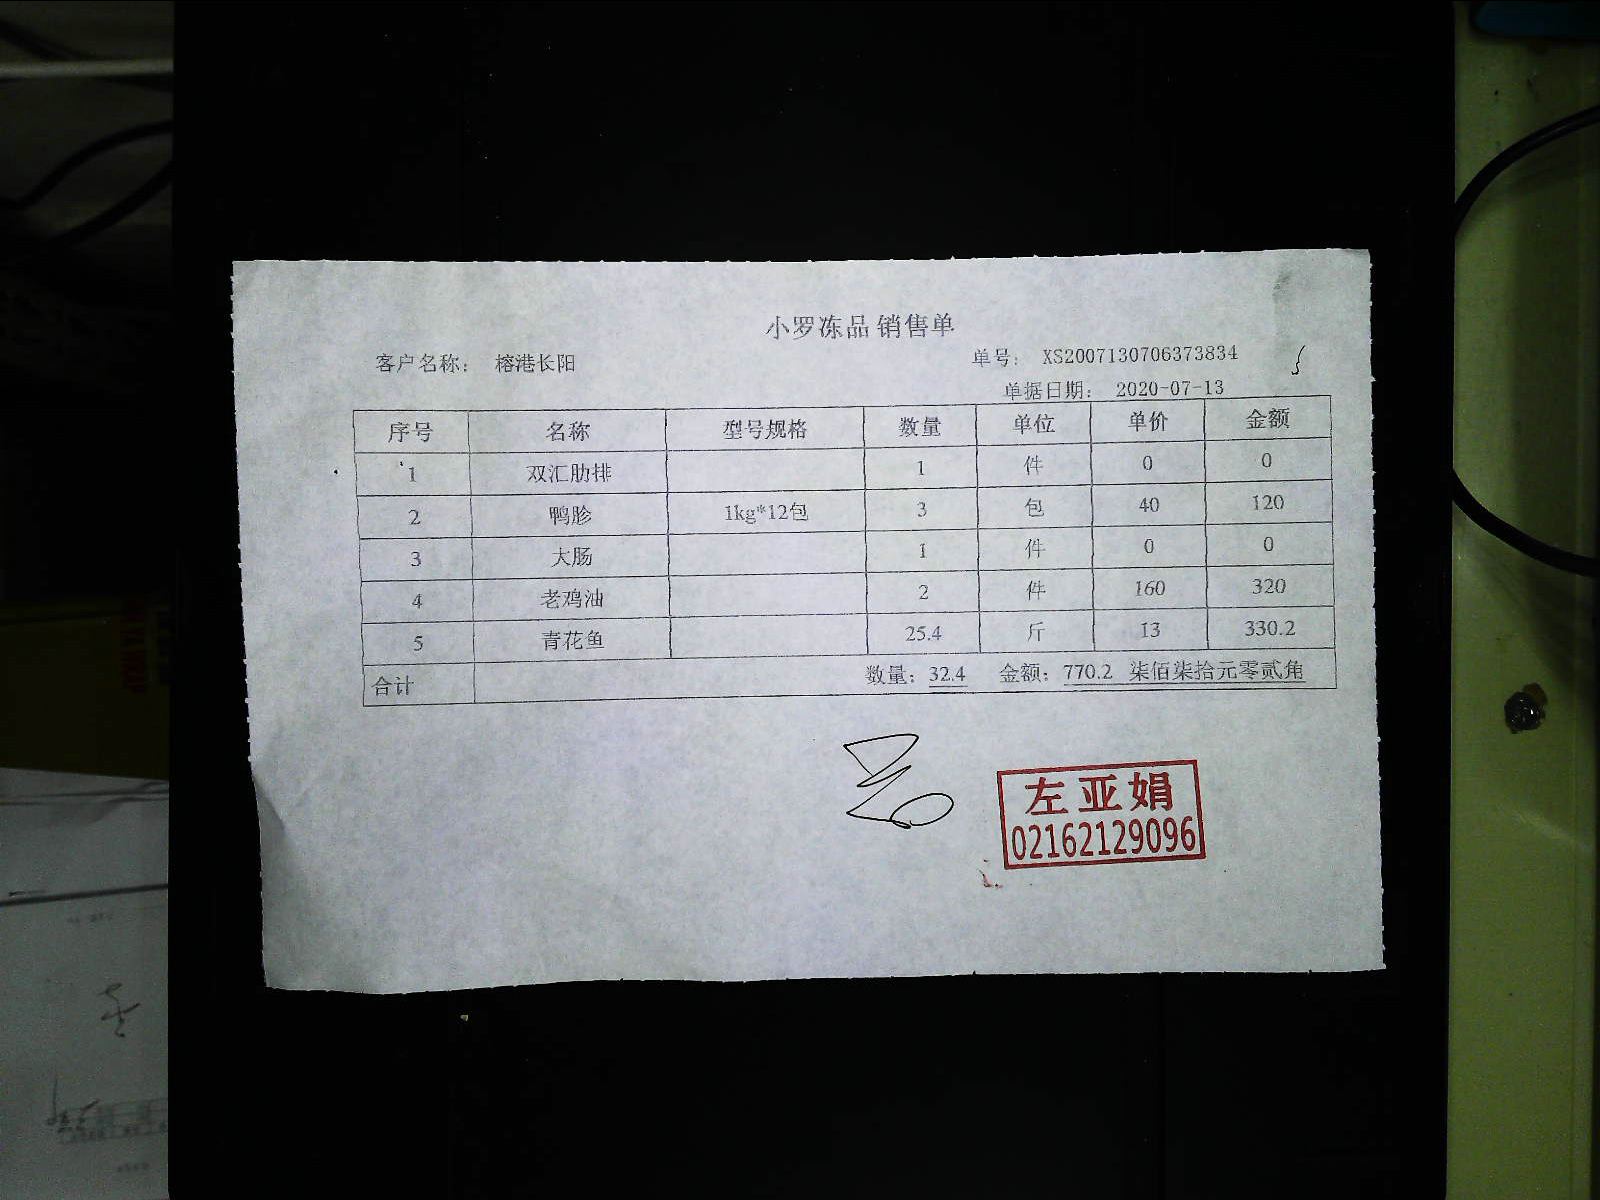 小罗冻品 销售单
客户名称： 榕港长阳 单号： XS2007130706373834
单据日期： 2020-07-13
序号 名称 型号规格 数量 单位 单价 金额
1 双汇肋排 1 件 0 0
2 鸭胗 1kg*12包 3 包 40 120
3 大肠 1 件 0 0
4 老鸡油 2 件 160 320
5 青花鱼 25.4 斤 13 330.2
合计 数量：32.4 金额：770.2 柒佰柒拾元零贰角
左亚娟
02162129096